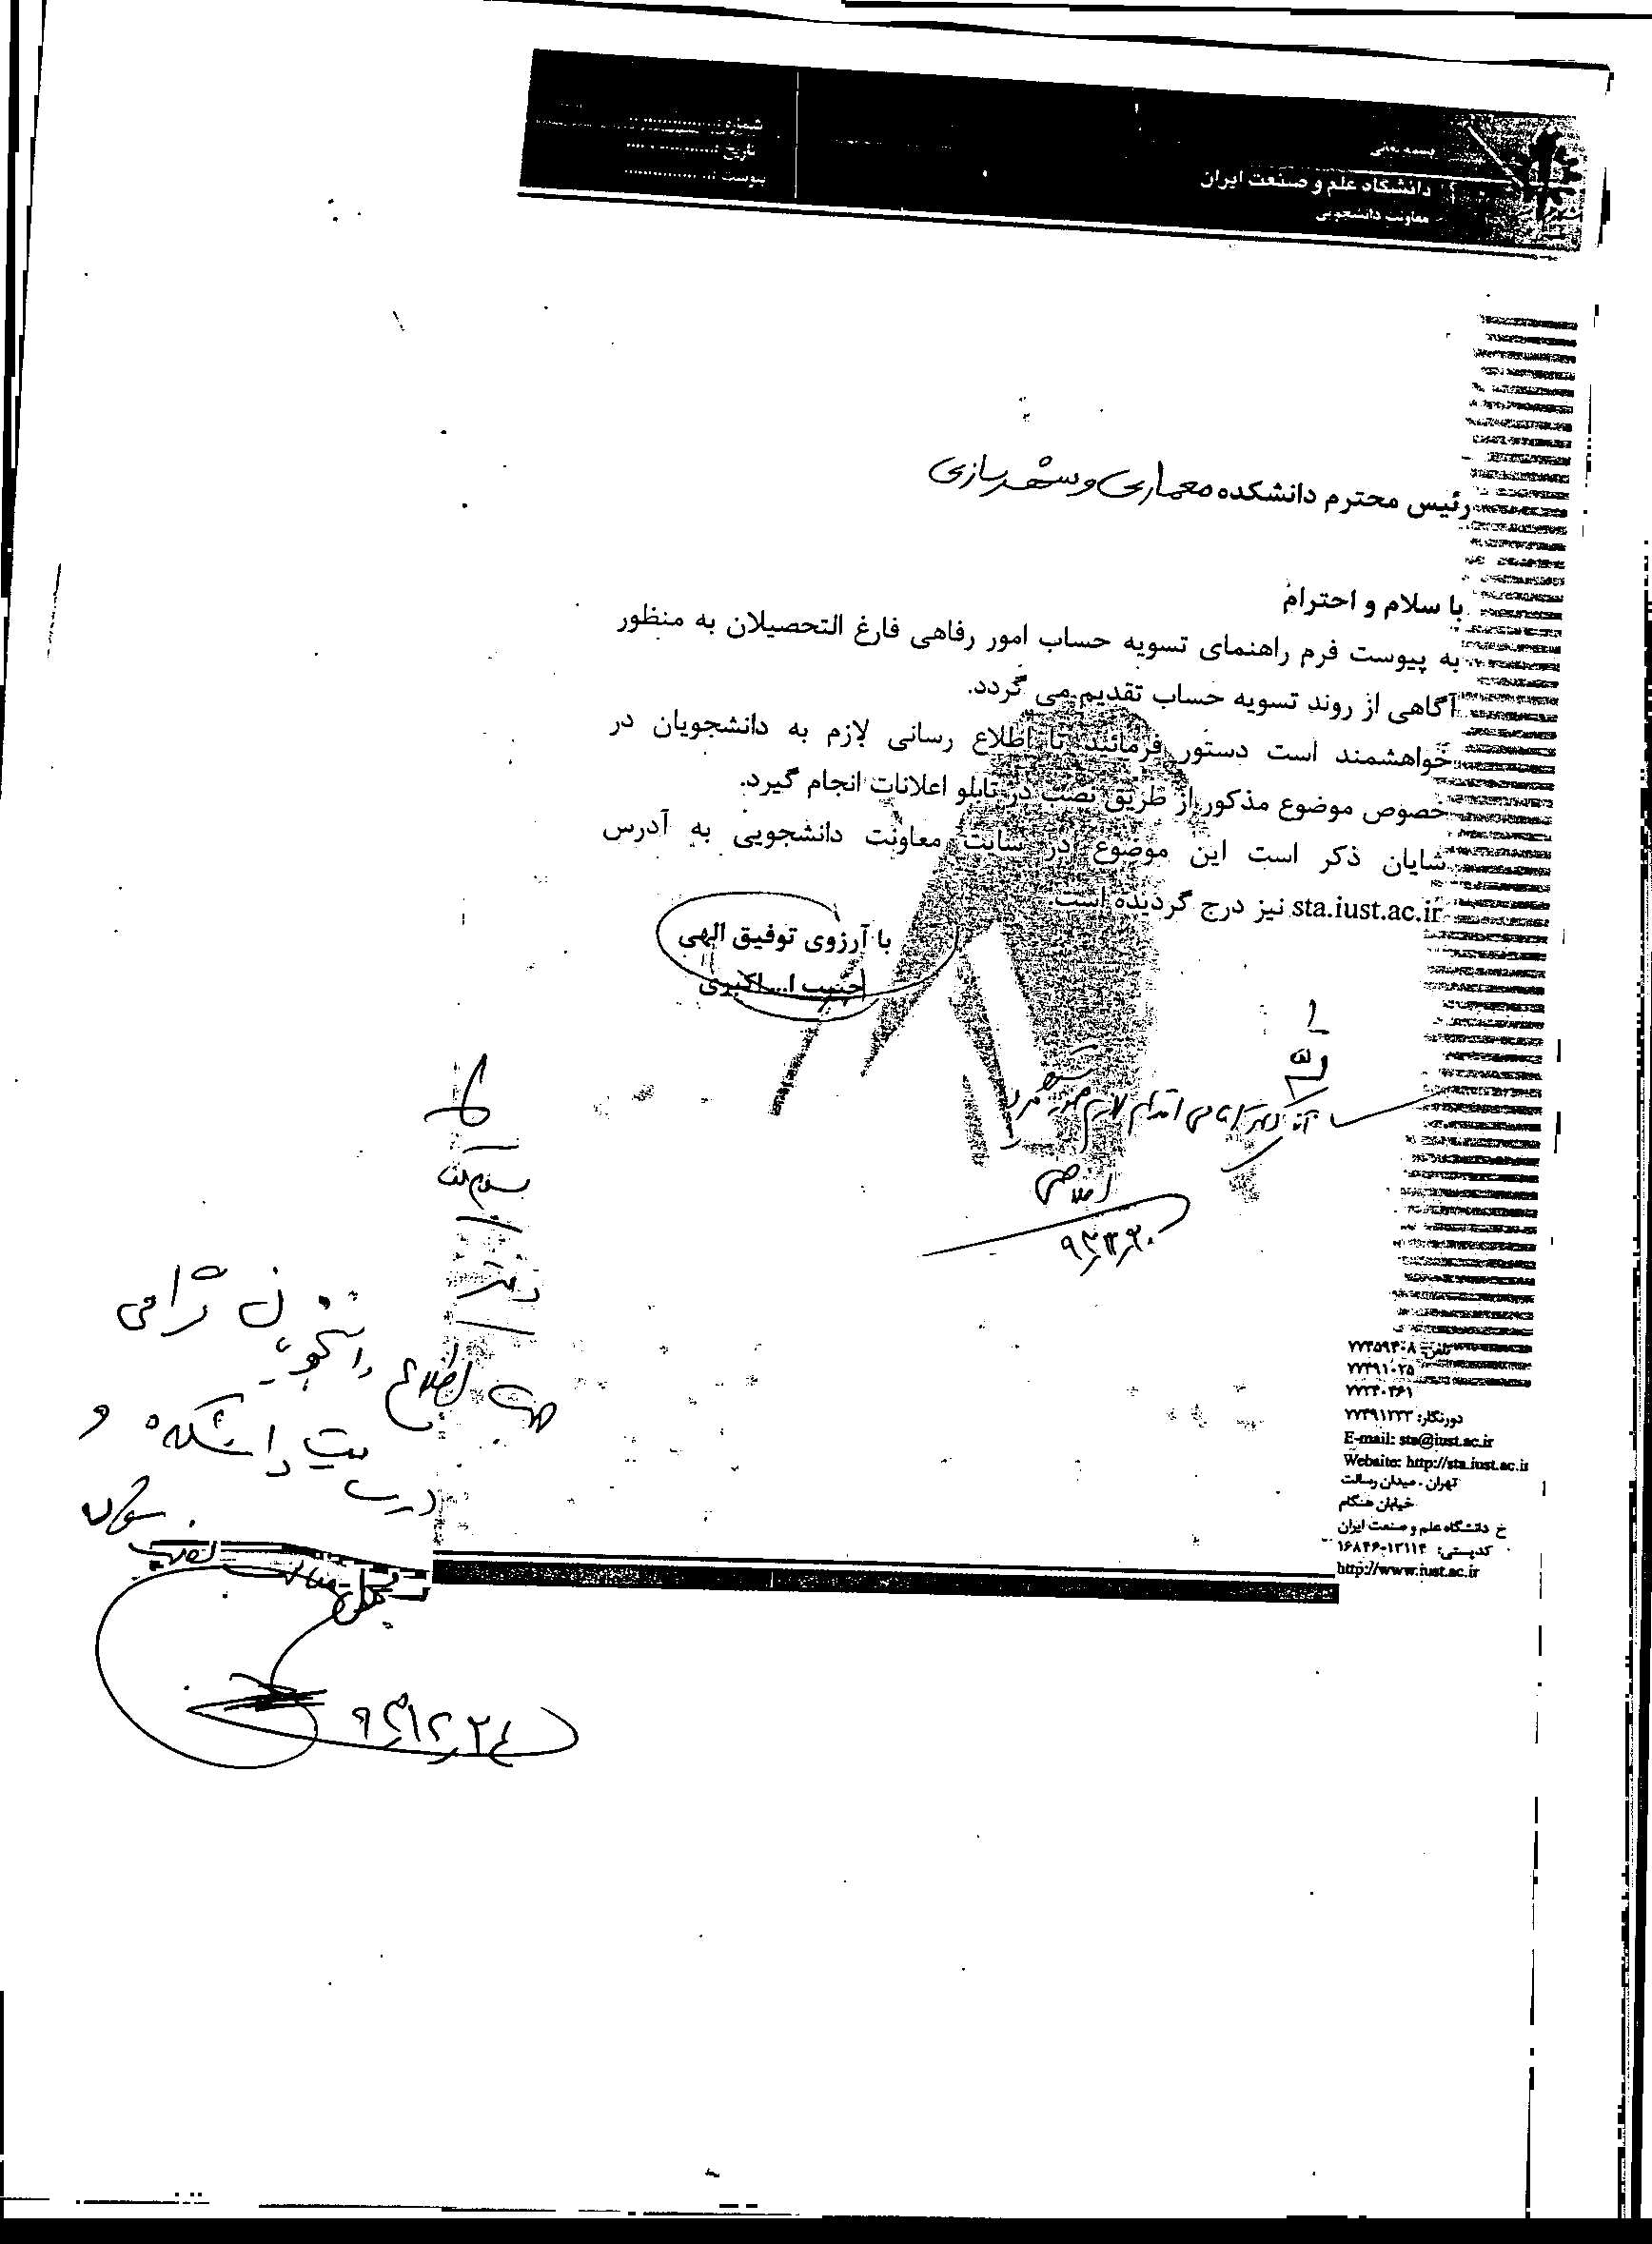 بسمه تعالی
دانشگاه علم و صنعت ایران
معاونت دانشجویی
شماره :
تاریخ :
پیوست :
رئیس محترم دانشکده معماری و شهرسازی
با سلام و احترام
به پیوست فرم راهنمای تسویه حساب امور رفاهی فارغ التحصیلان به منظور
آگاهی از روند تسویه حساب تقدیم می گردد.
خواهشمند است دستور فرمائید تا اطلاع رسانی لازم به دانشجویان در
خصوص موضوع مذکور از طریق نصب در تابلو اعلانات انجام گیرد.
شایان ذکر است این موضوع در سایت معاونت دانشجویی به آدرس
sta.iust.ac.ir نیز درج گردیده است.
با آرزوی توفیق الهی
حبیب ا... اکبری
اقدام لازم
جهت اطلاع دانشجویان گرامی
در سایت دانشکده و
تلفن: ۷۷۴۵۹۴۰۸
۷۷۴۹۱۰۲۵
۷۷۲۴۰۴۶۱
دورنگار: ۷۷۴۹۱۲۴۳
E-mail: sta@iust.ac.ir
Website: http://sta.iust.ac.ir
تهران ـ میدان رسالت
خیابان هنگام
خ دانشگاه علم و صنعت ایران
کدپستی: ۱۶۸۴۶-۱۳۱۱۴
http://www.iust.ac.ir